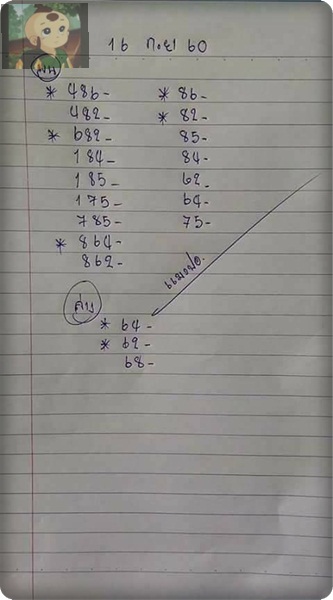 16 ก.ย 60
บน
* 486-  * 86-
482-  * 82-
* 682-  85-
184-  84-
185-  62-
175-  64-
785-  75-
* 864-
862-
ล่าง
* 64-
* 62-
68-